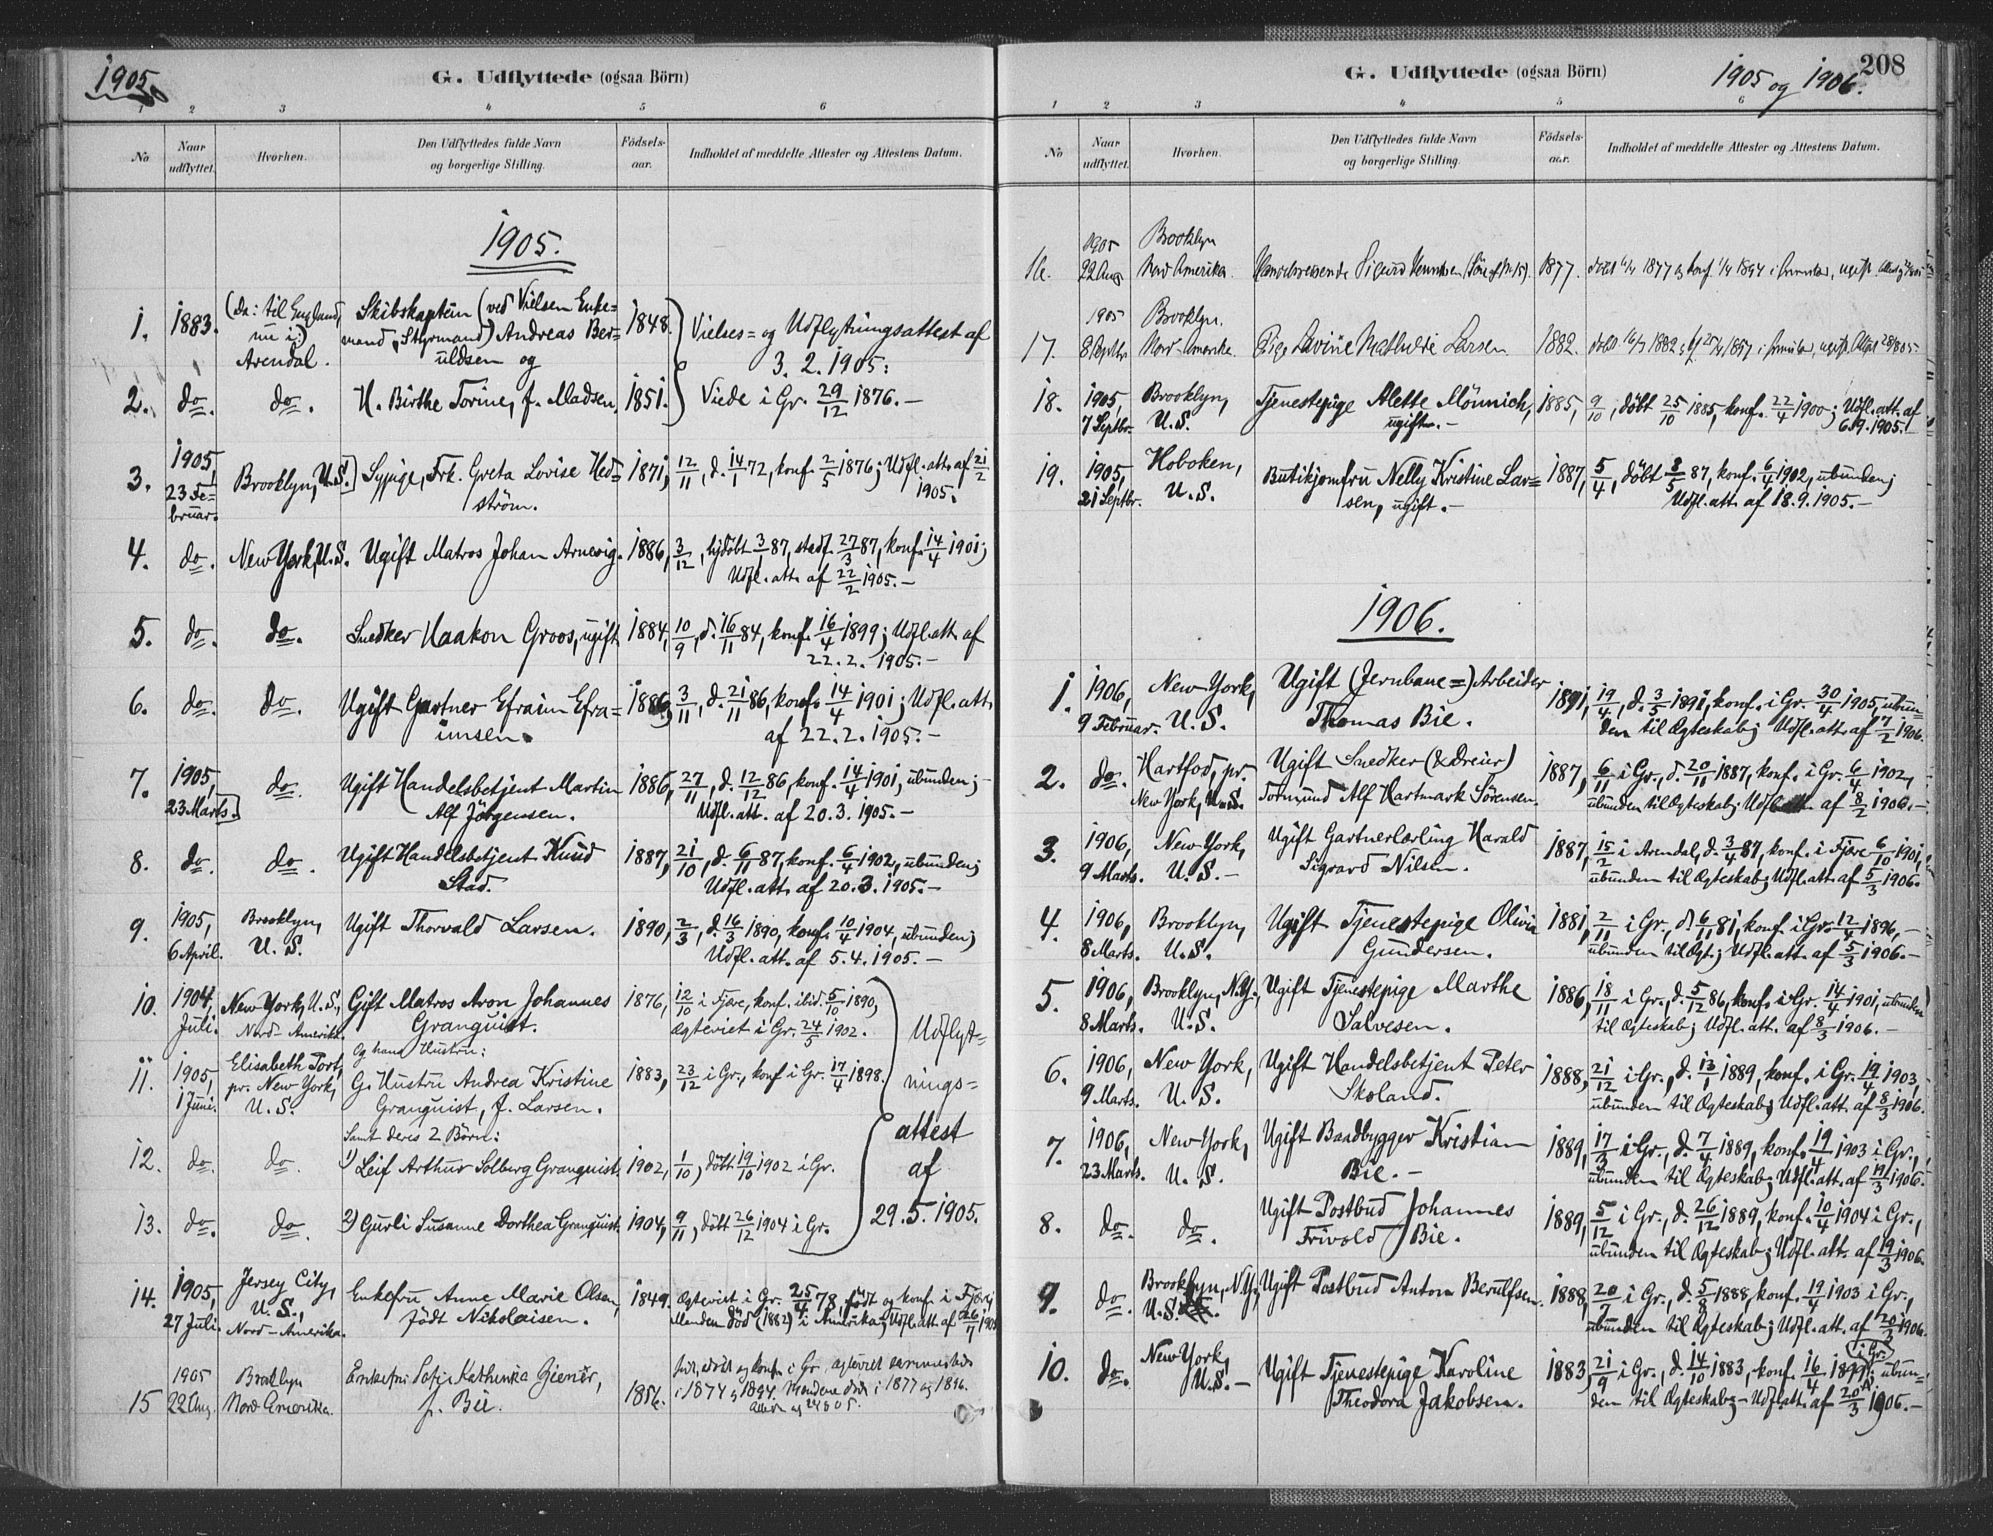 1905.
G. Udflyttede (ogsaa Börn)
1 2 3 4 5 6
No
Naar udflyttet.
Hvorhen.
Den Udflyttedes fulde Navn og borgerlige Stilling.
Födsels-aar.
Indholdet af meddelte Attester og Attestens Datum.
1905.
1. 1883. (da: til England, nu i:) Arendal. Skibskaptein (ved Vielsen Enke=mand, Styrmand) Andreas Ber=uldsen og 1848. Vielses= og Udflytningsattest af 3. 2. 1905:
2. do. do. H. Birthe Torine, f. Madsen, 1851. Viede i Gr. 29/12 1876.—
3. 1905, 23 Fe=bruar. Brooklyn, U.S. Sypige, Frk. Greta Lovise Hed=ström. 1871, 12/11, d. 14/1 72, konf. 2/5 1876; Udfl. att. af 21/2 1905.
4. do. New York, U.S. Ugift Matros Johan Arnevig. 1886, 3/12, hjdöbt 3/1 87, stadf. 27/3 87, konf. 14/4 1901; Udfl. att. af 22/2 1905.—
5. do. do. Snedker Haakon Groos, ugift 1884, 10/9, d. 16/11 84, konf. 16/4 1899; Udfl. att. af 22. 2. 1905.—
6. do. do. Ugift Gartner Efraim Efra=imsen. 1886, 3/11, d. 21/11 86, konf. 14/4 1901; Udfl. att. af 22. 2. 1905.—
7. 1905, 23 Marts. do. Ugift Handelsbetjent Martin Alf Jörgensen. 1886, 27/11, d. 12/12 86, konf. 14/4 1901, ubunden; Udfl. att. af 20. 3. 1905.—
8. do. do. Ugift Handelsbetjent Knud Stad. 1887, 21/10, d. 6/11 87, konf. 6/4 1902, ubunden; Udfl. att. af 20. 3. 1905.—
9. 1905, 6 April. Brooklyn, U.S. Ugift Thorvald Larsen. 1890, 2/3, d. 16/3 1890, konf. 10/4 1904, ubunden; Udfl. att. af 5. 4. 1905.—
10. 1904, Juli. New York, U.S., Nord-Amerika. Gift Matros Aron Johannes Granquist. 1876, 12/10 i Fjære, konf. ibid. 5/10 1890, Ægteviet i Gr. 24/5 1902.
Og hans Hustru:
11. 1905, 1 Juni. Elisabeth Port, pr. New York, U.S. G. Hustru Andrea Kristine Granquist, f. Larsen. 1883, 23/12 i Gr., konf i Gr. 17/4 1898.
Samt deres 2 Börn:
12. do. do. 1) Leif Arthur Solberg Granquist. 1902, 1/10, döbt 19/10 1902 i Gr.
13. do. do. 2) Gurli Susanne Dorthea Granquist. 1904, 9/11, döbt 26/12 1904 i Gr.
Udflyt=nings=attest af 29. 5. 1905.
14. 1905, 27 Juli. Jersey City, U.S., Nord-Amerika. Enkefru Anne Marie Olsen, födt Nikolaisen. 1849. Ægteviet i Gr. 25/4 78, födt og konf. i Fjære. Manden död (1882) i Amerika; Udfl. att. af
15 1905 22 Aug. Brooklyn Nord Amerika. Enkefru Kathinka f. Bie. 1856.
G. Udflyttede (ogsaa Börn)
1905 og 1906.
208
1 2 3 4 5 6
No
Naar udflyttet.
Hvorhen.
Den Udflyttedes fulde Navn og borgerlige Stilling.
Födsels-aar.
Indholdet af meddelte Attester og Attestens Datum.
16. 1905 22 Aug Brooklyn Nord Amerika. Handelsreisende Sigurd 1877.
17. 1905 8 Septbr. Brooklyn. Nord Amerika. Pige Lavine Mathilde Larsen 1882.
18. 1905, 7 Septbr. Brooklyn, U.S. Tjenestepige Alette Mönnich, ugift.— 1885, 9/10, döbt 25/10 1885, konf. 22/4 1900; Udfl. att. af 6. 9. 1905.—
19. 1905, 21 Septbr. Hoboken, U.S. Butikjomfru Nelly Kristine Lar=sen, ugift.— 1887, 5/4, döbt 8/5 87, konf. 6/4 1902, ubunden; Udfl. att. af 18. 9. 1905.—
1906.
1. 1906, 9 Februar. New York, U.S. Ugift (Jernbane=)Arbeider Thomas Bie. 1891, 19/4, d. 3/5 1891, konf. i Gr. 30/4 1905, ubun=den til Ægteskab; Udfl. att. af 7/2 1906.
2. do. Hartfod, pr. New York, U.S. Ugift Snedker (& Dreier) Tormund Alf Hartmark Sörensen. 1887, 6/11 i Gr., d. 20/11 1887, konf. i Gr. 6/4 1902, ubunden til Ægteskab; Udfl. att. af 8/2 1906.—
3. 1906, 9 Marts. New York, U.S.— Ugift Gartnerlærling Harald Sigvard Nilsen. 1887, 15/2 i Arendal, d. 3/4 87, konf. i Fjære 6/10 1901, ubunden til Ægteskab; Udfl. att. af 5/3 1906.
4. 1906, 8 Marts. Brooklyn, U.S. Ugift Tjenestepige Olivia Gundersen. 1881, 2/11 i Gr., d. 6/11 81, konf. i Gr. 12/4 1896,— ubunden til Ægt.; Udfl. att. af 5/3 1906.—
5. 1906, 8 Marts. Brooklyn, N.Y., U.S. Ugift Tjenestepige Marthe Salvesen. 1886, 18/11 i Gr., d. 5/12 86, konf. i Gr. 14/4 1901, ubunden til Ægteskab; Udfl. att. af 8/3 1906.—
6. 1906, 9 Marts. New York, U.S. Ugift Handelsbetjent Peter Skoland. 1888, 21/12 i Gr., d. 13/1 1889, konf. i Gr. 19/4 1903, ubunden til Ægteskab; Udfl. att. af 8/3 1906.
7. 1906, 23 Marts. New York, U.S. Ugift Baadbygger Kristian Bie.— 1889, 17/3 i Gr., d. 7/4 1889, konf. 19/4 1903 i Gr., ubunden til Ægteskab; Udfl. att. af 19/3 1906.
8. do. do. Ugift Postbud Johannes Frivold Bie. 1889, 5/12 i Gr., d. 26/12 1889, konf. 10/4 1904 i Gr., ubunden til Ægteskab; Udfl. att. af 19/3 1906.
9. do. Brooklyn, N.Y., U.S. Ugift Postbud Anton Berulfsen. 1888, 20/7 i Gr., d. 5/8 1888, konf. 19/4 1903 i Gr., ubunden til Ægteskab; Udfl. att. af 20/3 1906.
10. do. New York, U.S.— Ugift Tjenestepige Karoline Theodora Jakobsen. 1883, 21/9 i Gr., d. 14/10 1883, konf. 16/4 1899 (i Gr.), ubun=den til Ægteskab;— Udfl. att. af 20/3 1906.—